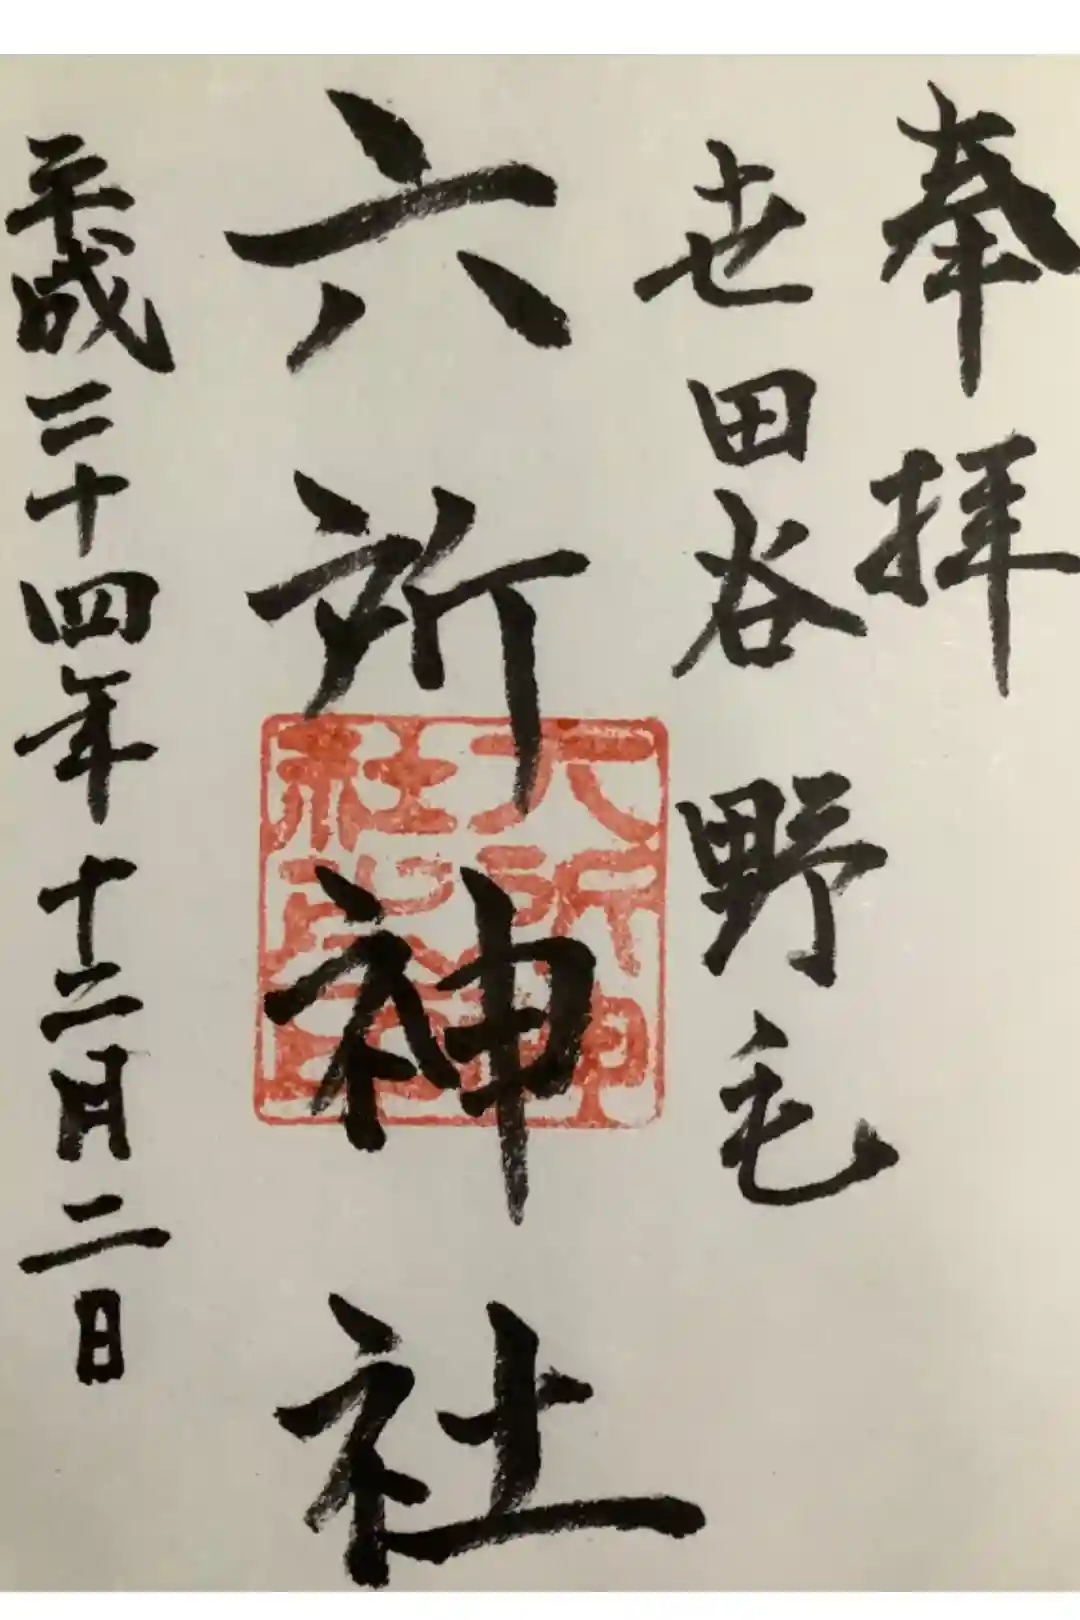 奉拝
世田谷 野毛
六所神社
平成二十四年十二月二日
六所神
社之印